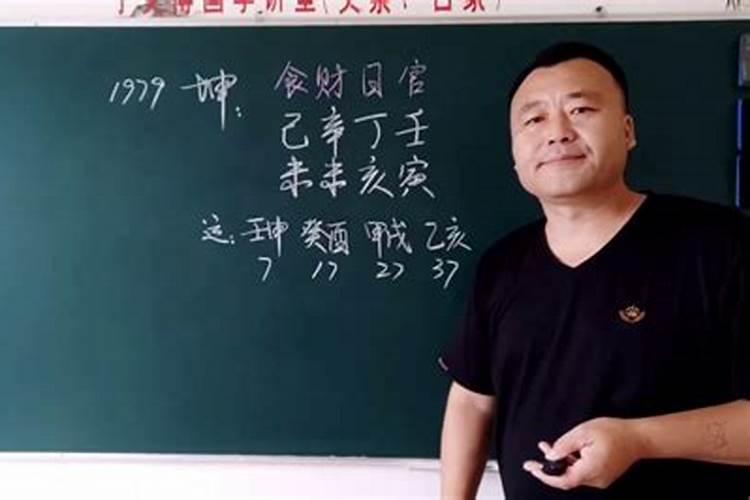 国学讲堂
1979 坤: 食财日官
己辛丁壬
未未亥寅
运: 壬申 癸酉 甲戌 乙亥
7 17 27 37